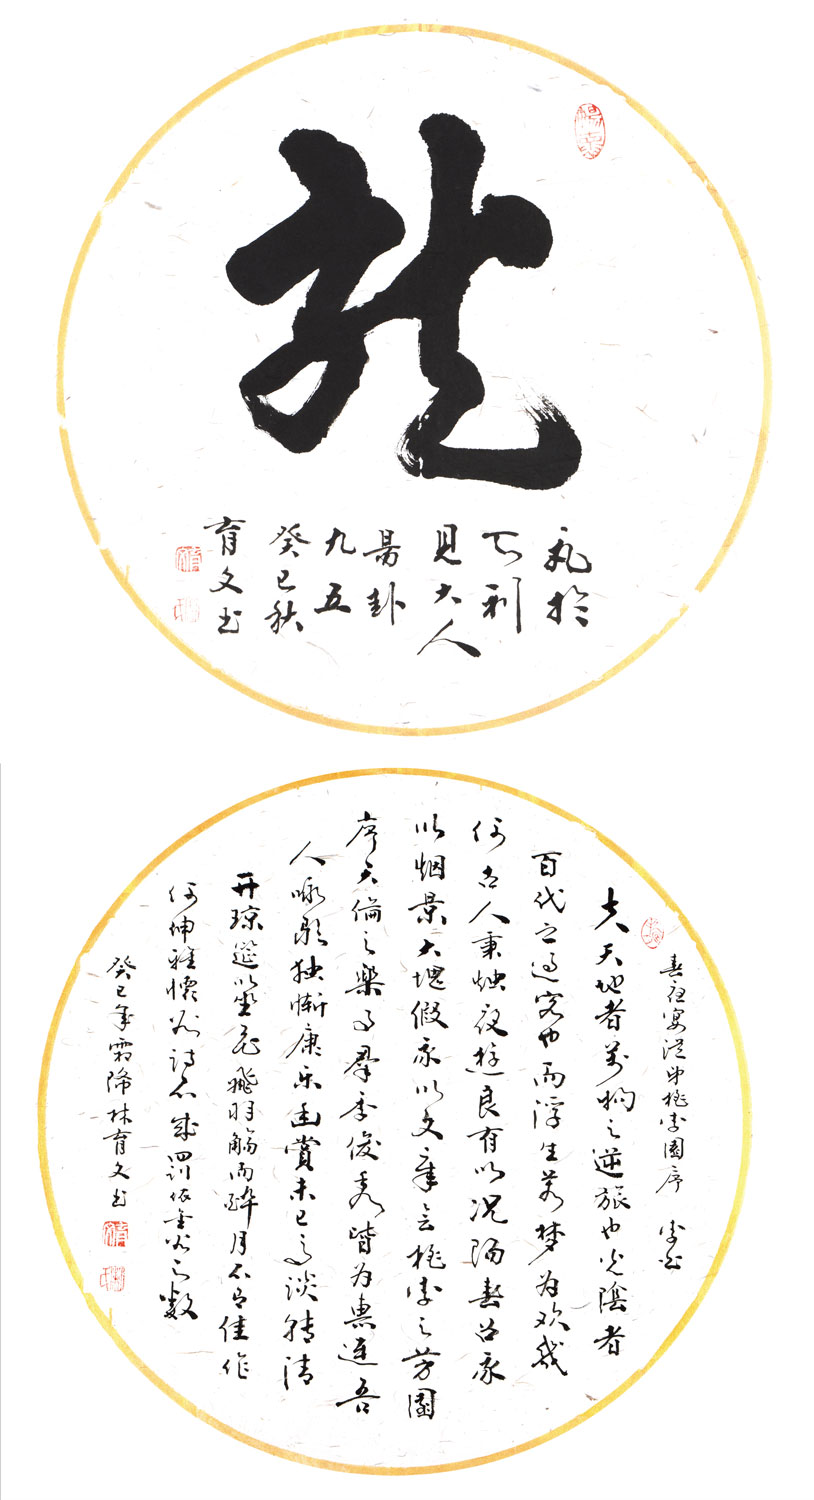 龙
飛於
天利
見大人
易卦
九五
癸巳秋
育文书
春夜宴從弟桃李園序 李白
夫天地者万物之逆旅也光陰者
百代之過客也而浮生若梦为欢幾
何古人秉烛夜遊良有以况陽春召我
以烟景大塊假我以文章会桃李之芳園
序天倫之樂事羣季俊秀皆为惠連吾
人咏歌独慚康乐幽賞未已高談转清
开琼筵以坐花飛羽觴而醉月不有佳作
何伸雅懷如詩不成罰依金谷之數
癸巳年霜降林育文书